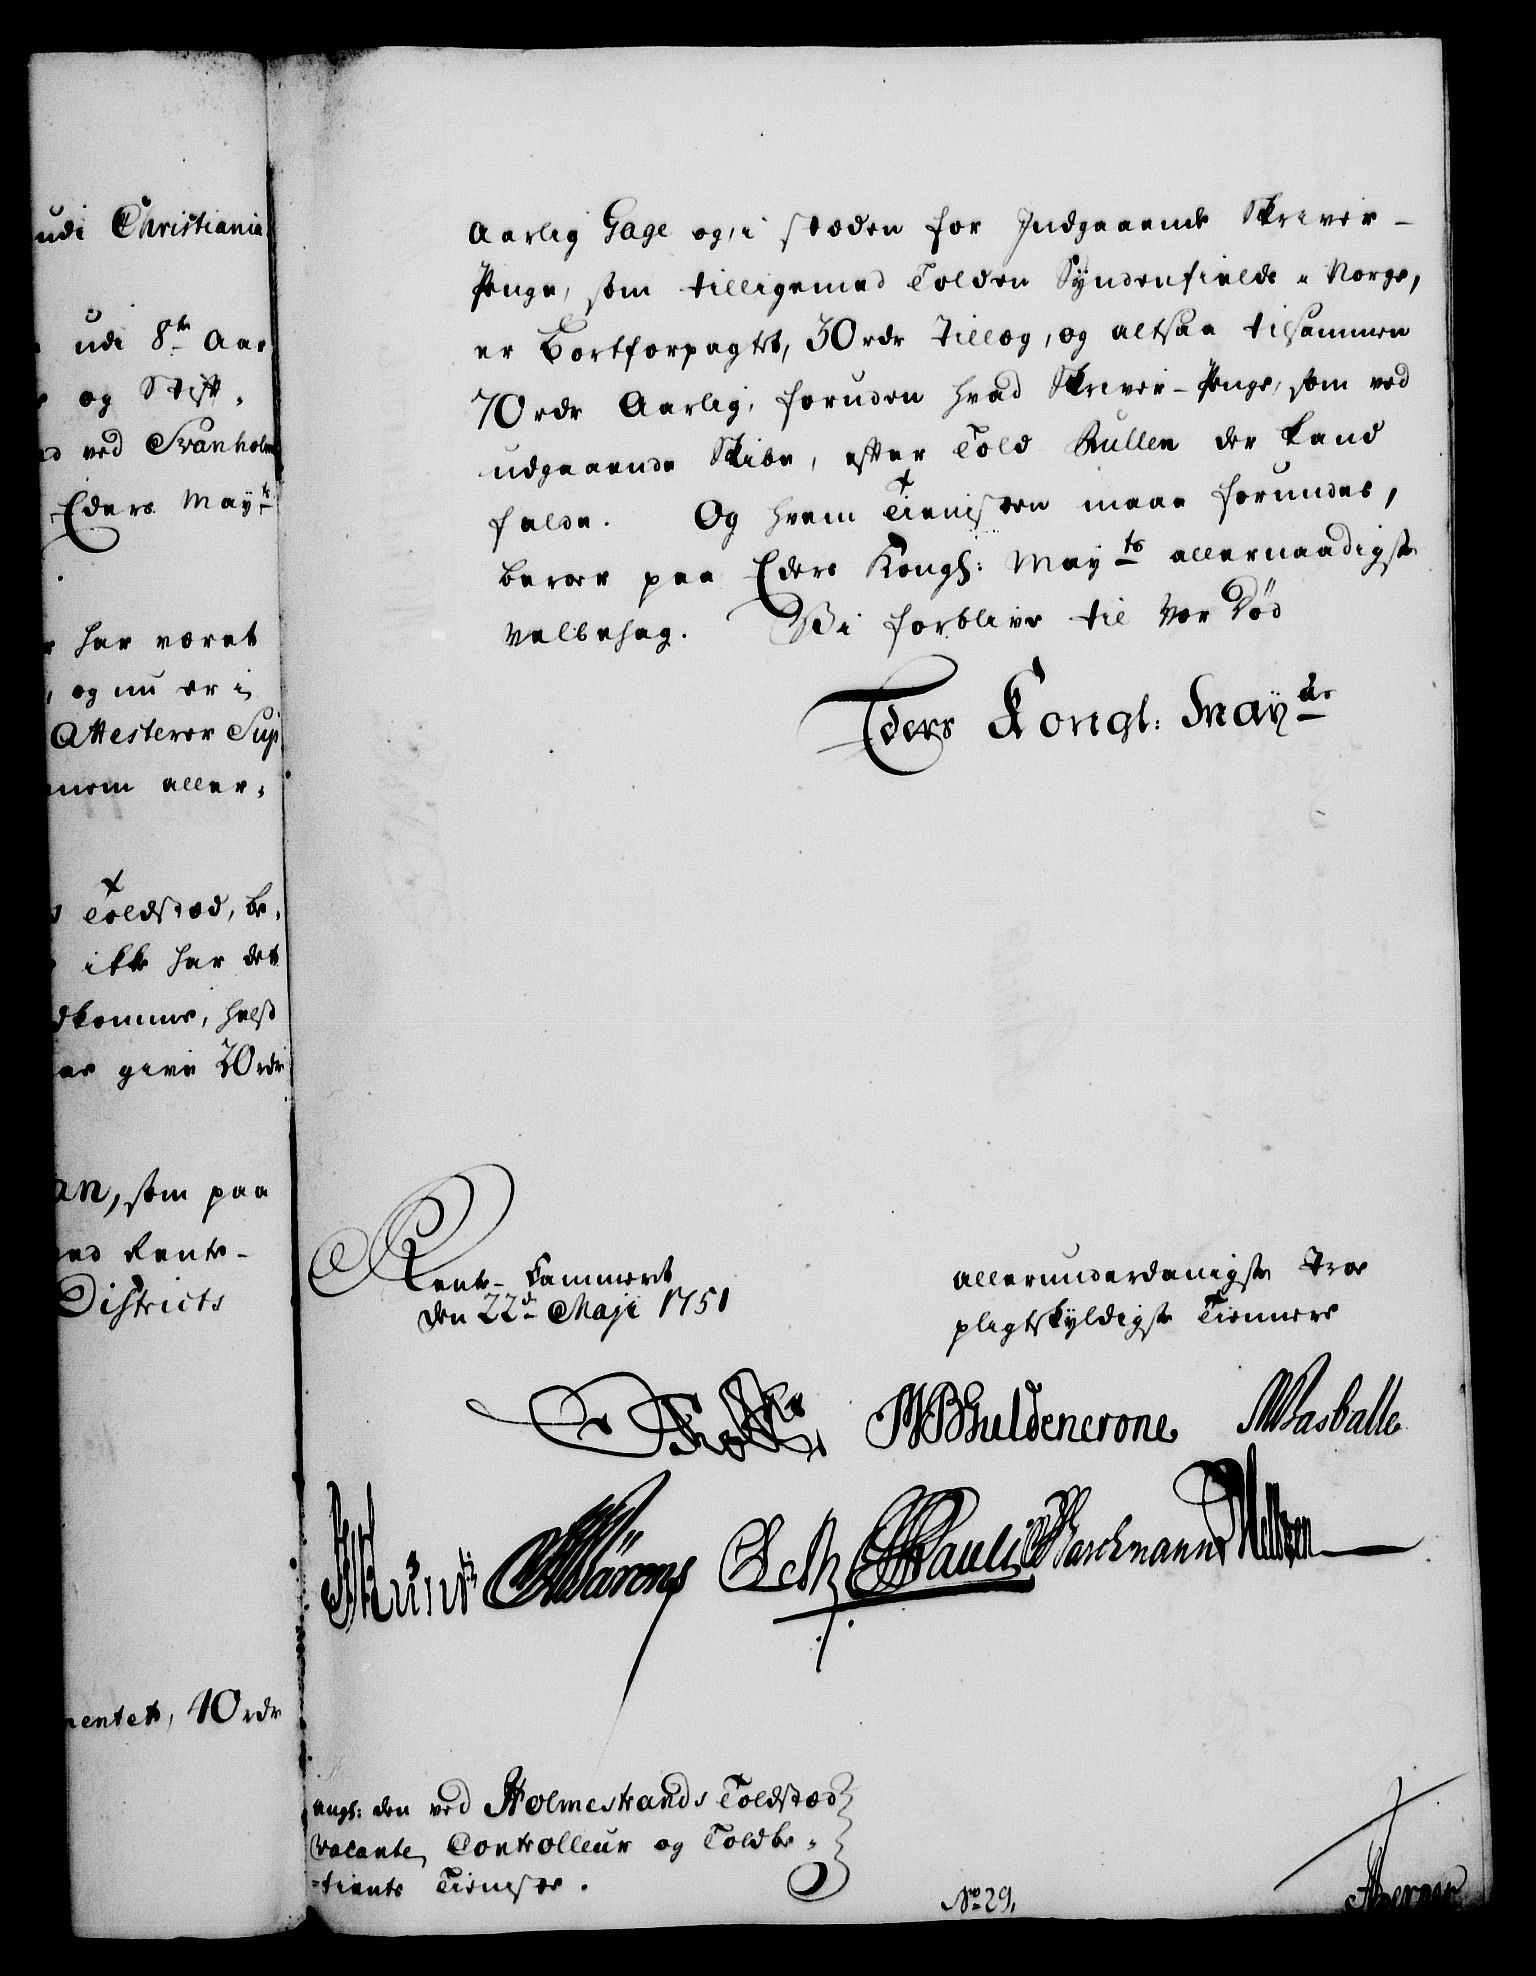 udi Christiania
udi 8te Aar
og Stift-
ved Svanholm
Eders Mayts
har været
, og nu er i
Attesterer Sup
aller-
Toldstæd, be-
ikke har det
komme, helst
give 20 rdr
an, som paa
Rente-
Districts
mentet, 40 rdr
Aarlig Gage og, i stæden for Indgaaende Skriver-
Penge, som tilligemed Tolden Syndenfields i Norge,
er Bortforpagtet, 30 rdr Tillæg, og altsaa tilsammen
70 rdr Aarlig, foruden hvad Skriver-Penge, som ved
udgaaende Skibe, efter Told Rullen der kand
falde. Og hvem Tienisten maae forundes,
beroer paa Eders Kongl: Mayts allernaadigste
Velbehag. Vi forblive til Vor Død
Eders Kongl: Mayts
Rente-Cammeret
den 22de Maji 1751
allerunderdanigste Troe
pligtskyldigste Tiennere
Güldencrone Wasballe
Pauli
angl: den ved Holmestrands Toldstæd
vacante Controlleur og Toldbe-
-tiente Tieniste.
No 29.